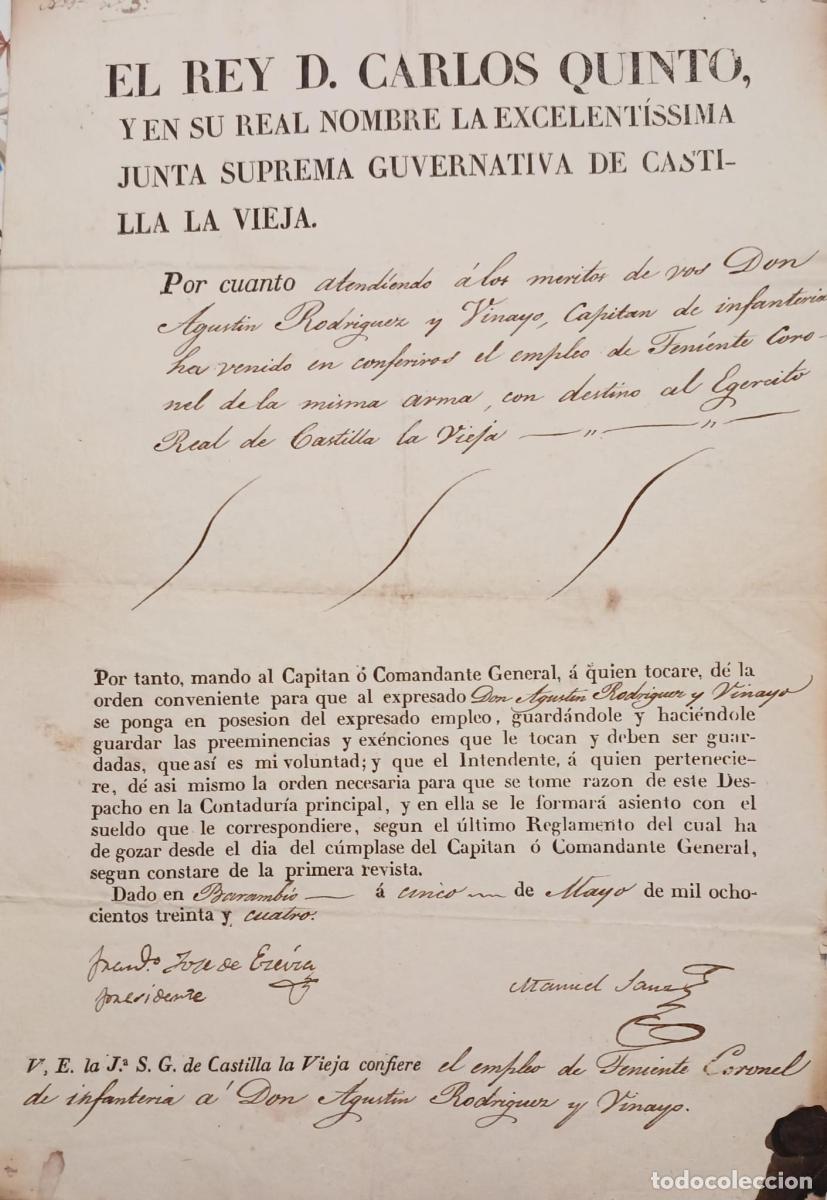 EL REY D. CARLOS QUINTO,
Y EN SU REAL NOMBRE LA EXCELENTÍSSIMA
JUNTA SUPREMA GUVERNATIVA DE CASTI-
LLA LA VIEJA.
Por cuanto atendiendo á los meritos de vos Don
Agustin Rodriguez y Vinayo, Capitan de infanteria
ha venido en conferiros el empleo de Teniente Coro-
nel de la misma arma, con destino al Egercito
Real de Castilla la Vieja
Por tanto, mando al Capitan ó Comandante General, á quien tocare, dé la
orden conveniente para que al expresado Don Agustin Rodriguez y Vinayo
se ponga en posesion del expresado empleo, guardándole y haciéndole
guardar las preeminencias y exénciones que le tocan y deben ser guar-
dadas, que así es mi voluntad; y que el Intendente, á quien pertenecie-
re, dé asi mismo la orden necesaria para que se tome razon de este Des-
pacho en la Contaduría principal, y en ella se le formará asiento con el
sueldo que le correspondiere, segun el último Reglamento del cual ha
de gozar desde el dia del cúmplase del Capitan ó Comandante General,
segun constare de la primera revista.
Dado en Barambio á cinco de Mayo de mil ocho-
cientos treinta y cuatro.
Jose de
presidente
Manuel Sanz
V, E. la J.ª S. G. de Castilla la Vieja confiere el empleo de Teniente Coronel
de infanteria á Don Agustin Rodriguez y Vinayo.
todocoleccion